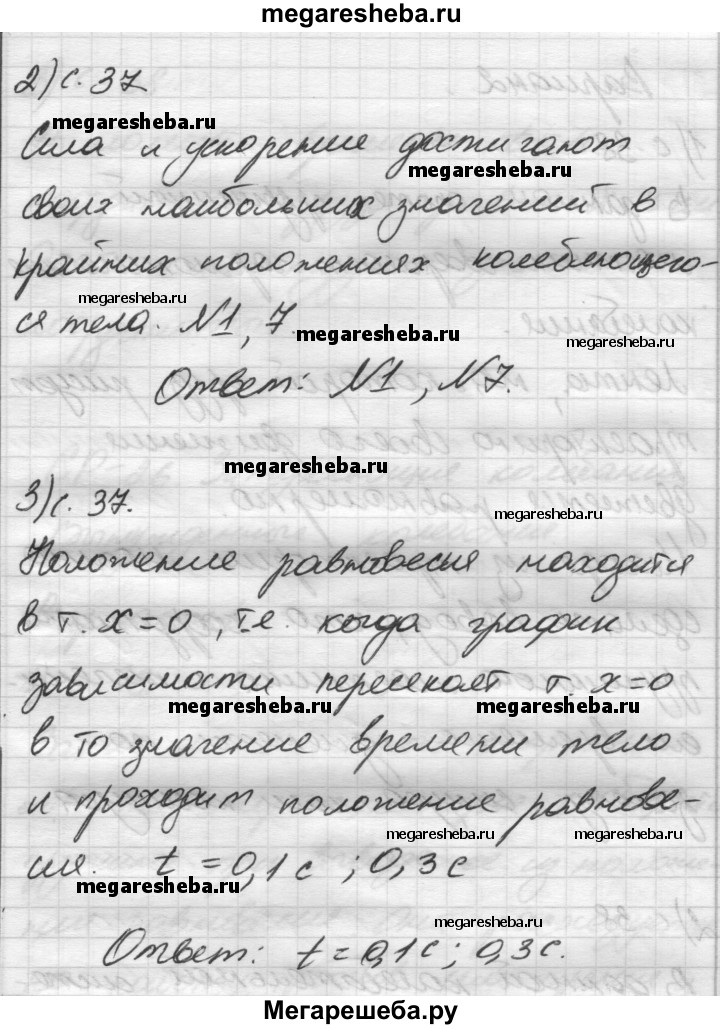 megaresheba.ru
2) с. 37
megaresheba.ru
Сила и ускорение достигают
megaresheba.ru
своих наибольших значений в
крайних положениях колеблющего-
megaresheba.ru
ся тела. №1, 7.
megaresheba.ru
megaresheba.ru
Ответ: №1, №7.
megaresheba.ru
3) с. 37.
megaresheba.ru
Положение равновесия находится
в т. x=0, т.е. когда график
зависимости пересекает т. x=0
megaresheba.ru megaresheba.ru
в то значение времени тело
и проходит положение равнове-
megaresheba.ru megaresheba.ru
сия. t=0,1с ; 0,3с
megaresheba.ru
megaresheba.ru
Ответ: t=0,1с; 0,3с.
Мегарешеба.ру